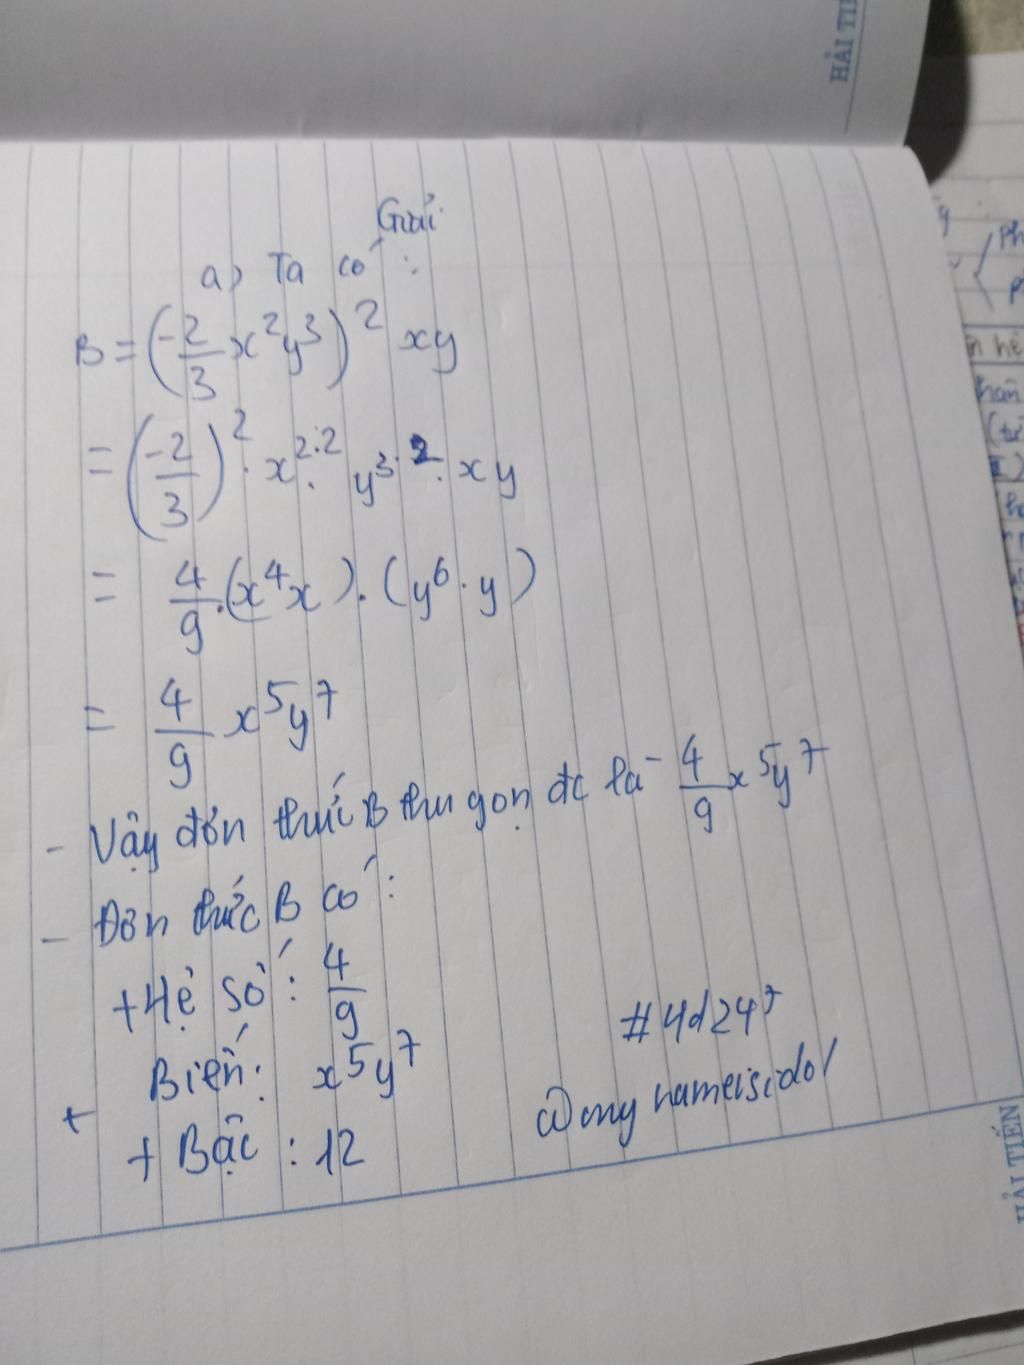 HẢI TI
Giải
a) Ta có :
B = (-2/3 x²y³)² xy
= (-2/3)² . x²·² . y³·² . xy
= 4/9 . (x⁴x) . (y⁶ . y)
= 4/9 x⁵y⁷
- Vậy đơn thức B thu gọn đc là 4/9 x⁵y⁷
- Đơn thức B có :
+ Hệ số : 4/9
+ Biến : x⁵y⁷
+ Bậc : 12
#4d247
@mynameisidol
HẢI TIẾN